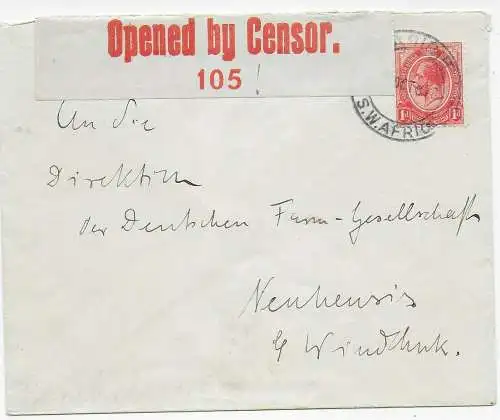 Opened by Censor.
105
S.W.AFRICA
1D 1D
An die
Direktion
der Deutschen Farm-Gesellschaft
Neuheusis
b/ Windhuk.